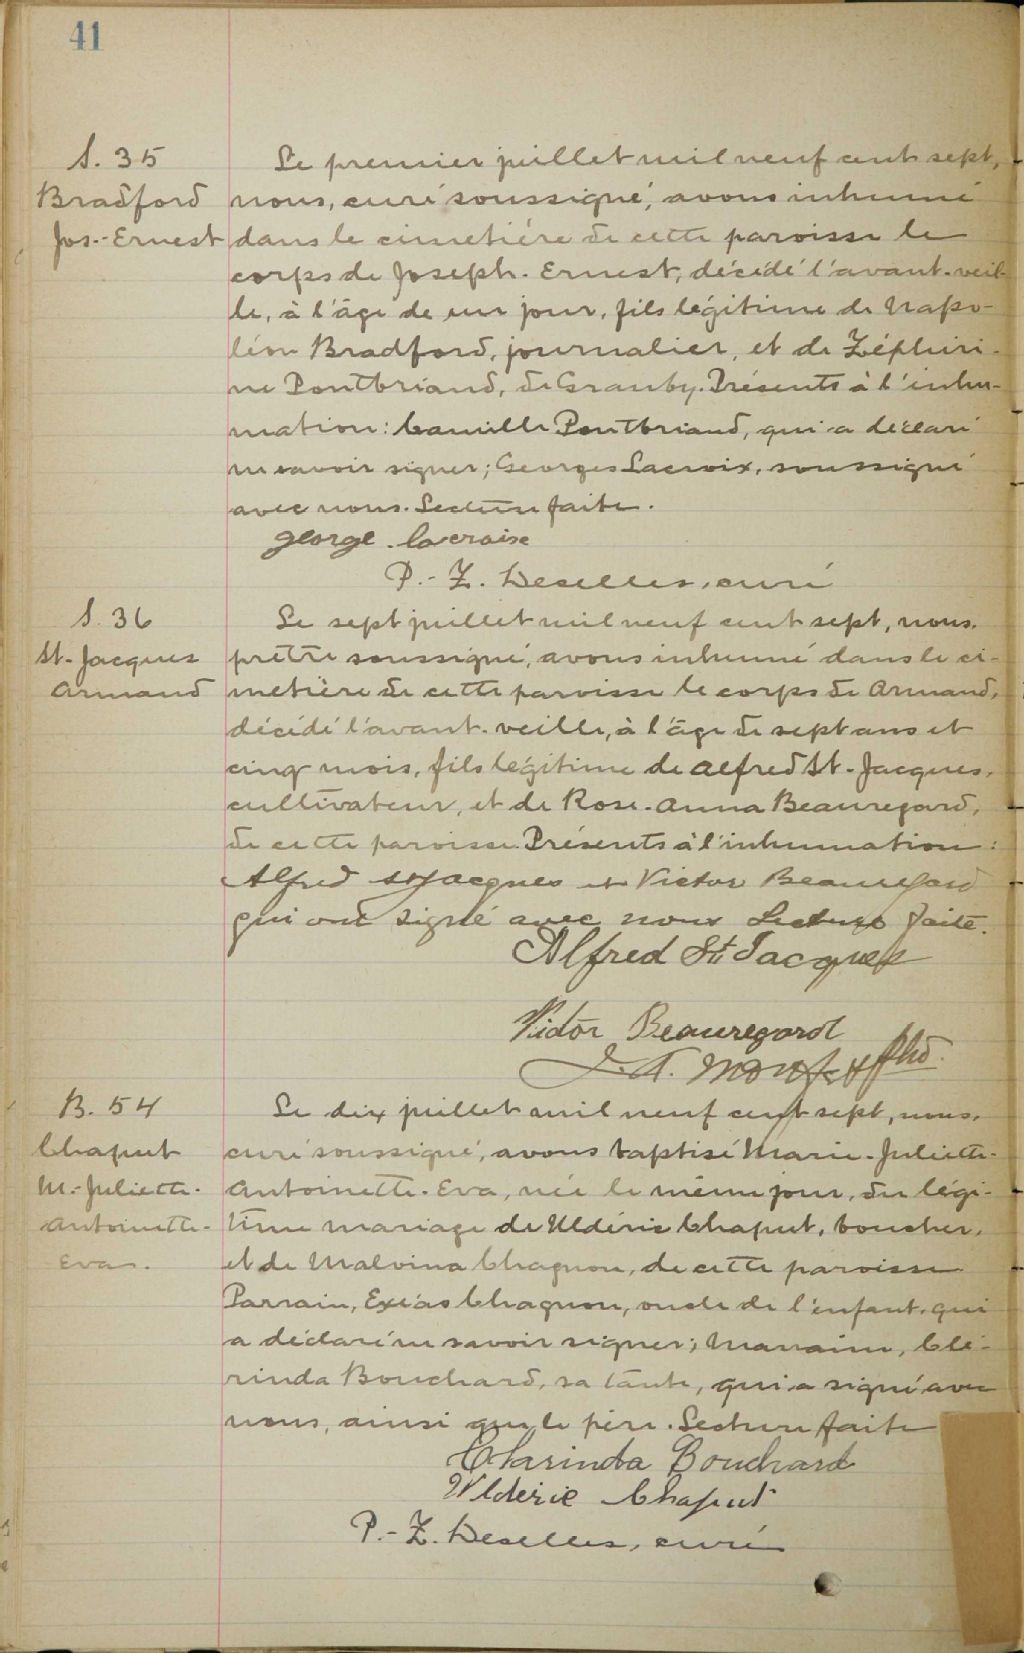 41
S. 35
Bradford
Jos.-Ernest
Le premier juillet mil neuf cent sept,
nous, curé soussigné, avons inhumé
dans le cimetière de cette paroisse le
corps de Joseph-Ernest, décédé l'avant-veil-
le, à l'âge de un jour, fils légitime de Napo-
léon Bradford, journalier, et de Zéphiri-
ne Pontbriand, de Granby. Présents à l'inhu-
mation: Camille Pontbriand, qui a déclaré
ne savoir signer; Georges Lacroix, soussigné
avec nous. Lecture faite.
george. lacroise
P.-Z. Deselles, curé
S. 36
St-Jacques
Armand
Le sept juillet mil neuf cent sept, nous,
prêtre soussigné, avons inhumé dans le ci-
metière de cette paroisse le corps de Armand,
décédé l'avant-veille, à l'âge de sept ans et
cinq mois, fils légitime de Alfred St-Jacques,
cultivateur, et de Rose-Anna Beauregard,
de cette paroisse. Présents à l'inhumation:
Alfred St Jacques et Victor Beauregard
qui ont signé avec nous Lecture faite.
Alfred St Jacques
Victor Beauregard
B. 54
Chaput
M.-Juliette-
Antoinette-
Eva.
Le dix juillet mil neuf cent sept, nous,
curé soussigné, avons baptisé Marie-Juliette-
Antoinette-Eva, née le même jour, du légi-
time mariage de Uldéric Chaput, boucher,
et de Malvina Chagnon, de cette paroisse
Parrain, Exéas Chagnon, oncle de l'enfant, qui
a déclaré ne savoir signer; Marraine, Clé-
rinda Bouchard, sa tante, qui a signé avec
nous, ainsi que le père. Lecture faite
Clarinda Bouchard
Ulderic Chaput
P.-Z. Deselles, curé